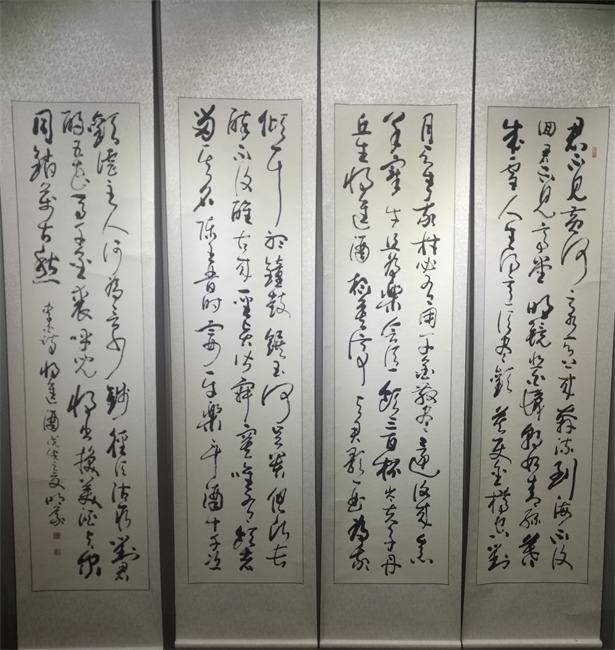 君不見黃河之水天上來奔流到海不復
回君不見高堂明鏡悲白髮朝如青絲暮
成雪人生得意須盡歡莫使金樽空對
月天生我材必有用千金散盡還復來烹
羊宰牛且為樂會須一飲三百杯岑夫子丹
丘生將進酒杯莫停與君歌一曲為我
傾耳聽鐘鼓饌玉何足貴但願長
醉不復醒古來聖賢皆寂寞唯有飲者
留其名陳王昔時宴平樂斗酒十千恣
歡謔主人何為言少錢徑須沽取對君
酌五花馬千金裘呼兒將出換美酒與爾
同銷萬古愁 李白詩 將進酒 戊戌之夏